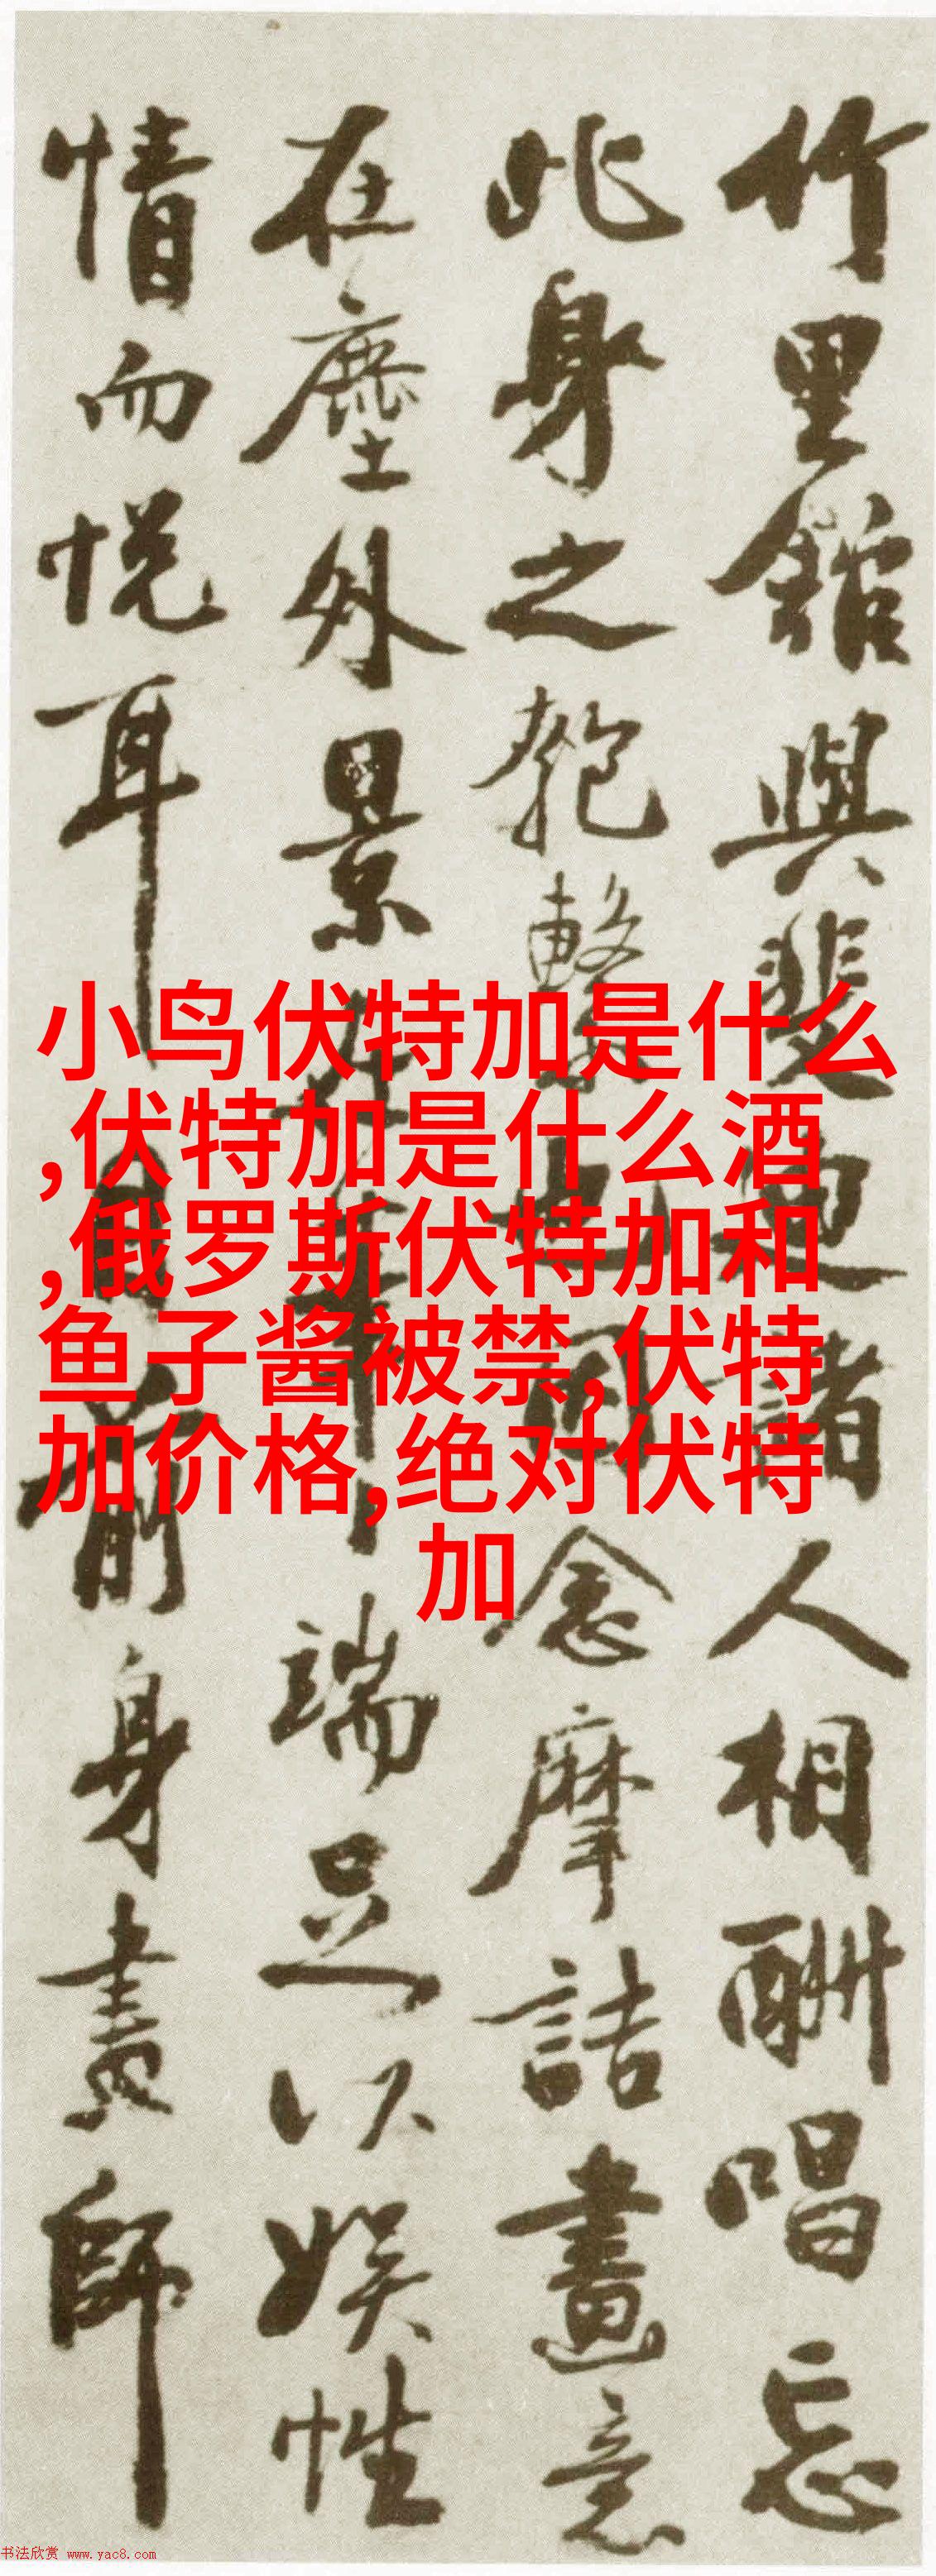 竹里館與裴迪諸人相酬唱忘
此身之匏繫也因念摩詰畫意
在塵外景端足以娛性
情而悅耳前身畫師
小鸟伏特加是什么
,伏特加是什么酒
,俄罗斯伏特加和
鱼子酱被禁,伏特
加价格,绝对伏特
加
书法欣赏 www.yac8.com